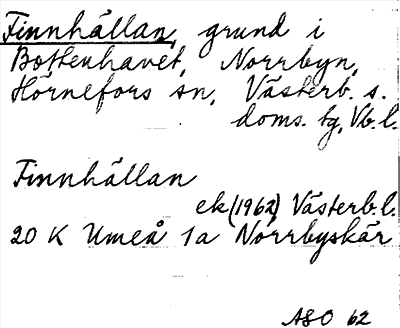 Finnhällan, grund i
Bottenhavet, Norrbyn,
Hörnefors sn, Västerb. s.
doms. tg, Vb. l.
Finnhällan
ek (1962) Västerb. l.
20 K Umeå 1a Norrbyskär
ASO 62